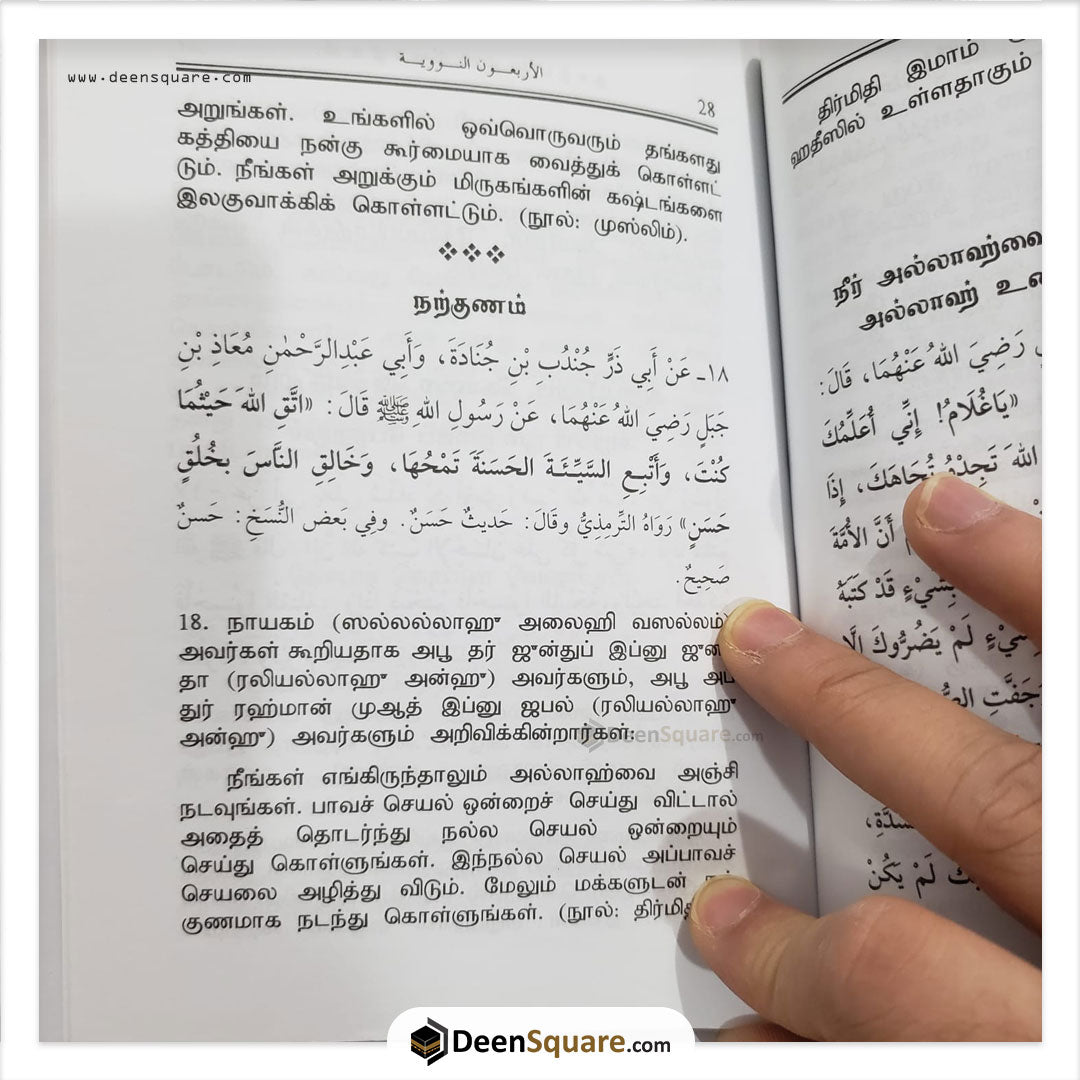 www.deensquare.com
الأربعون النووية
28
அறுங்கள். உங்களில் ஒவ்வொருவரும் தங்களது
கத்தியை நன்கு கூர்மையாக வைத்துக் கொள்ளட்
டும். நீங்கள் அறுக்கும் மிருகங்களின் கஷ்டங்களை
இலகுவாக்கிக் கொள்ளட்டும். (நூல்: முஸ்லிம்).
நற்குணம்
١٨ـ عَنْ أَبِي ذَرٍّ جُنْدُبِ بْنِ جُنَادَةَ، وَأَبِي عَبْدِالرَّحْمٰنِ مُعَاذِ بْنِ
جَبَلٍ رَضِيَ اللهُ عَنْهُمَا، عَنْ رَسُولِ اللهِ ﷺ قَالَ: «اتَّقِ اللهَ حَيْثُمَا
كُنْتَ، وَأَتْبِعِ السَّيِّئَةَ الحَسَنَةَ تَمْحُهَا، وَخَالِقِ النَّاسَ بِخُلُقٍ
حَسَنٍ» رَوَاهُ التِّرمِذِيُّ وقَالَ: حَديثٌ حَسَنٌ. وفِي بَعَضِ النُّسَخِ: حَسنٌ
صَحِيحٌ.
18. நாயகம் (ஸல்லல்லாஹு அலைஹி வஸல்லம்)
அவர்கள் கூறியதாக அபூ தர் ஜுன்துப் இப்னு
தா (ரலியல்லாஹு அன்ஹு) அவர்களும், அபூ
துர் ரஹ்மான் முஆத் இப்னு ஜபல் (ரலியல்லாஹு
அன்ஹு) அவர்களும் அறிவிக்கின்றார்கள்:
நீங்கள் எங்கிருந்தாலும் அல்லாஹ்வை அஞ்சி
நடவுங்கள். பாவச் செயல் ஒன்றைச் செய்து விட்டால்
அதைத் தொடர்ந்து நல்ல செயல் ஒன்றையும்
செய்து கொள்ளுங்கள். இந்நல்ல செயல் அப்பாவச்
செயலை அழித்து விடும். மேலும் மக்களுடன்
குணமாக நடந்து கொள்ளுங்கள். (நூல்:
DeenSquare.com
திர்மிதி இமாம்
ஹதீஸில் உள்ளதாகும்
நீர் அல்லாஹ்வை
அல்லாஹ்
رَضِيَ اللهُ عَنْهُمَا، قَالَ:
«يَاغُلَامُ! إِنِّي أُعَلِّمُكَ
اللهَ تَجِدْهُ تُجَاهَكَ، إِذَا
أَنَّ الأُمَّةَ
بِشَيْءٍ قَدْ كَتَبَهُ
لَمْ يَضُرُّوكَ
لَمْ يَكُنْ
DeenSquare.com